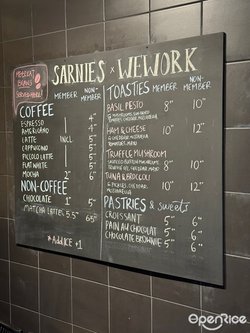 SARNIES x WEWORK
COFFEE
MEMBER
NON-MEMBER
ESPRESSO
4"
AMERICANO
4"
LATTE
INCL.
5"
CAPPUCCINO
5"
PICCOLO LATTE
5"
FLAT WHITE
5"
MOCHA
2"
6"
NON-COFFEE
CHOCOLATE
1"
5"
MATCHA LATTE
5.5"
6.5"
*Add ICE +1
TOASTIES
MEMBER
NON-MEMBER
BASIL PESTO
8"
10"
HAM & CHEESE
10"
12"
TRUFFLE MUSHROOM
8"
10"
TUNA & BROCCOLI
10"
12"
PASTRIES & sweets
CROISSANT
5"
6"
PAIN AU CHOCOLAT
5"
6"
CHOCOLATE BROWNIE
5"
6"
OpenRice